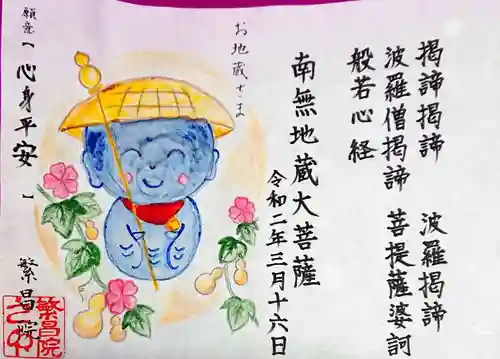 揭諦揭諦 波羅揭諦
波羅僧揭諦 菩提薩婆訶
般若心経
南無地蔵大菩薩
令和二年三月十六日
お地蔵さま
願意【心身平安】
繁昌院
繁昌院